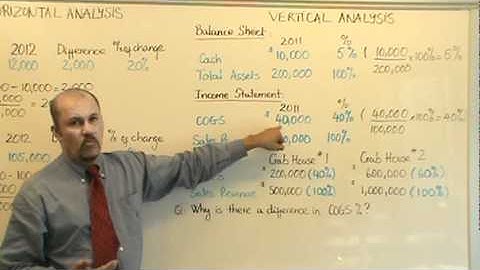 HORIZONTAL ANALYSIS
2012 Difference % of change
12,000 2,000 20%
2012 Difference % of change
105,000
VERTICAL ANALYSIS
Balance Sheet:
2011 %
Cash $ 10,000 5% ( 10,000 / 200,000 × 100% = 5%
Total Assets 200,000 100%
Income Statement:
2011 %
COGS $ 40,000 40% ( 40,000 / 100,000 × 100% = 40% )
Sales 100%
Crab House #1 Crab House #2
200,000 (40%) 600,000 (60%)
Sales Revenue 500,000 (100%) 1,000,000 (100%)
Q: Why is there a difference in COGS %?